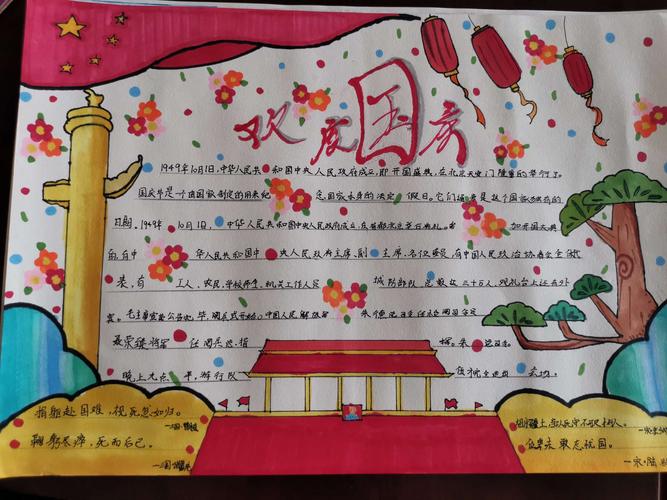 欢度国庆
1949年10月1日,中华人民共和国中央人民政府成立,即开国盛典,在北京天安门隆重的举行了。
国庆节是一个由国家制定的用来纪念国家本身的法定假日。它们通常是这个国家独立的
日期。1949年10月1日,中华人民共和国中央人民政府成立,在首都北京举行典礼。参加开国大典
的,有中华人民共和国中央人民政府主席、副主席、各位委员,有中国人民政治协商会全体代
表,有工人、农民、学校师生、机关工作人员城防部队总数达三十万人,观礼台上还有外
宾。毛主席宣读公告完毕,阅兵式开始,中国人民解放军朱德总司令任检阅司令员
聂荣臻将军任阅兵总指挥。朱总司令
晚上九点半,游行队
捐躯赴国难,视死忽如归。
鞠躬尽瘁,死而后已。
位卑未敢忘忧国。